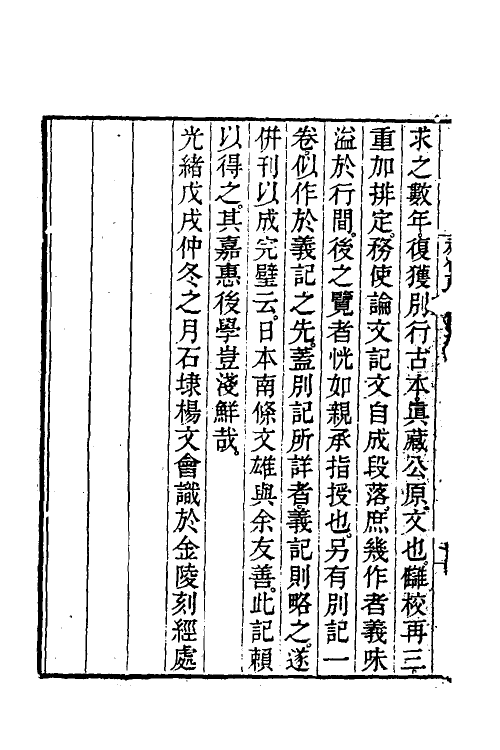 求之數年。復獲別行古本。眞藏公原文也。讎校再三。
重加排定。務使論文記文自成段落。庶幾作者義味
溢於行間。後之覽者恍如親承指授也。另有別記一
卷。似作於義記之先。蓋別記所詳者。義記則略之。遂
併刊以成完璧云。日本南條文雄與余友善。此記賴
以得之。其嘉惠後學豈淺鮮哉。
光緒戊戌仲冬之月石埭楊文會識於金陵刻經處